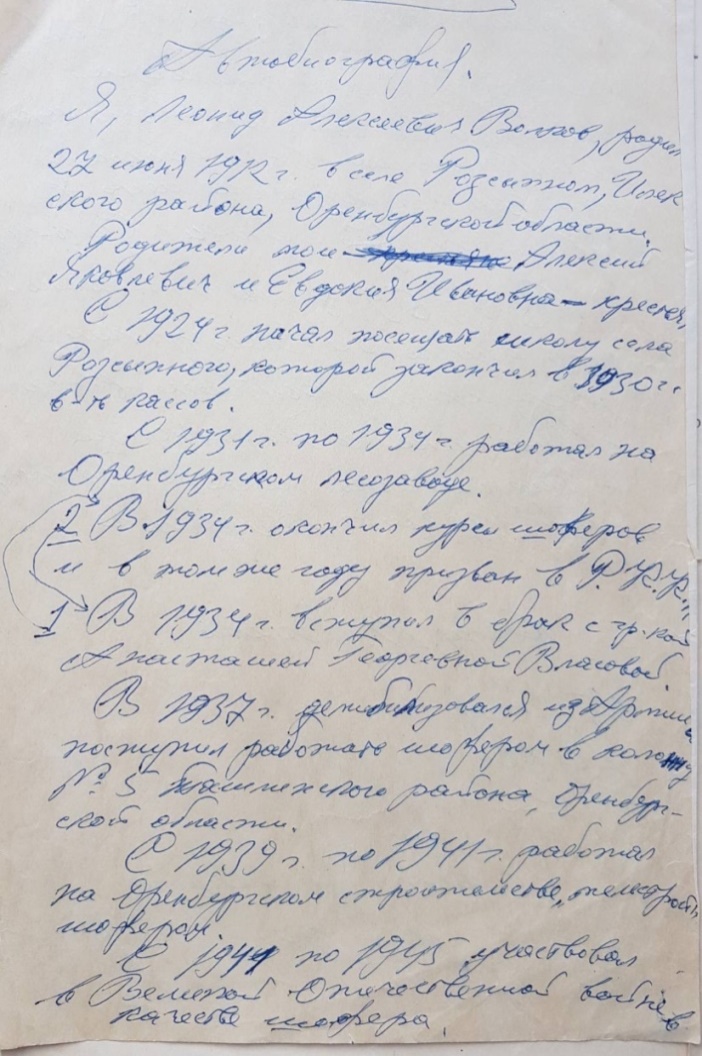 Автобиография.
Я, Леонид Алексеевич Волков, родил
27 июня 1912 г. в селе Розсыпном, Илек
ского района, Оренбургской области.
Родители мои Алексей
Яковлевич и Евдокия Ивановна – крестья
С 1924 г. начал посещать школу села
Розсыпного, которой закончил в 1930 г.
С 1931 г. по 1934 г. работал на
Оренбургском лесозаводе.
2 В 1934 г. окончил курсы шоферов
и в том же году призван в Р.К.К.
1 В 1934 г. вступил в брак с гр.кой
Анастасией Георгевной Власовой.
В 1937 г. демобилизовался из Армии
поступил работать шофером в колонну
№ 5 Ташлинского района, Оренбург-
ской области.
С 1939 г. по 1941 г. работал
на Оренбургском строительстве,
шофером.
С 1941 по 1945 участвовал
в Великой Отечественной войне в
качестве шофера.